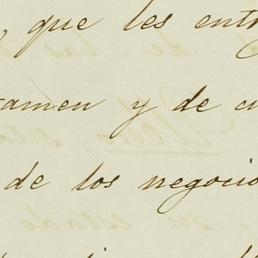 , que les entr
tamen y de cu
de los negocio